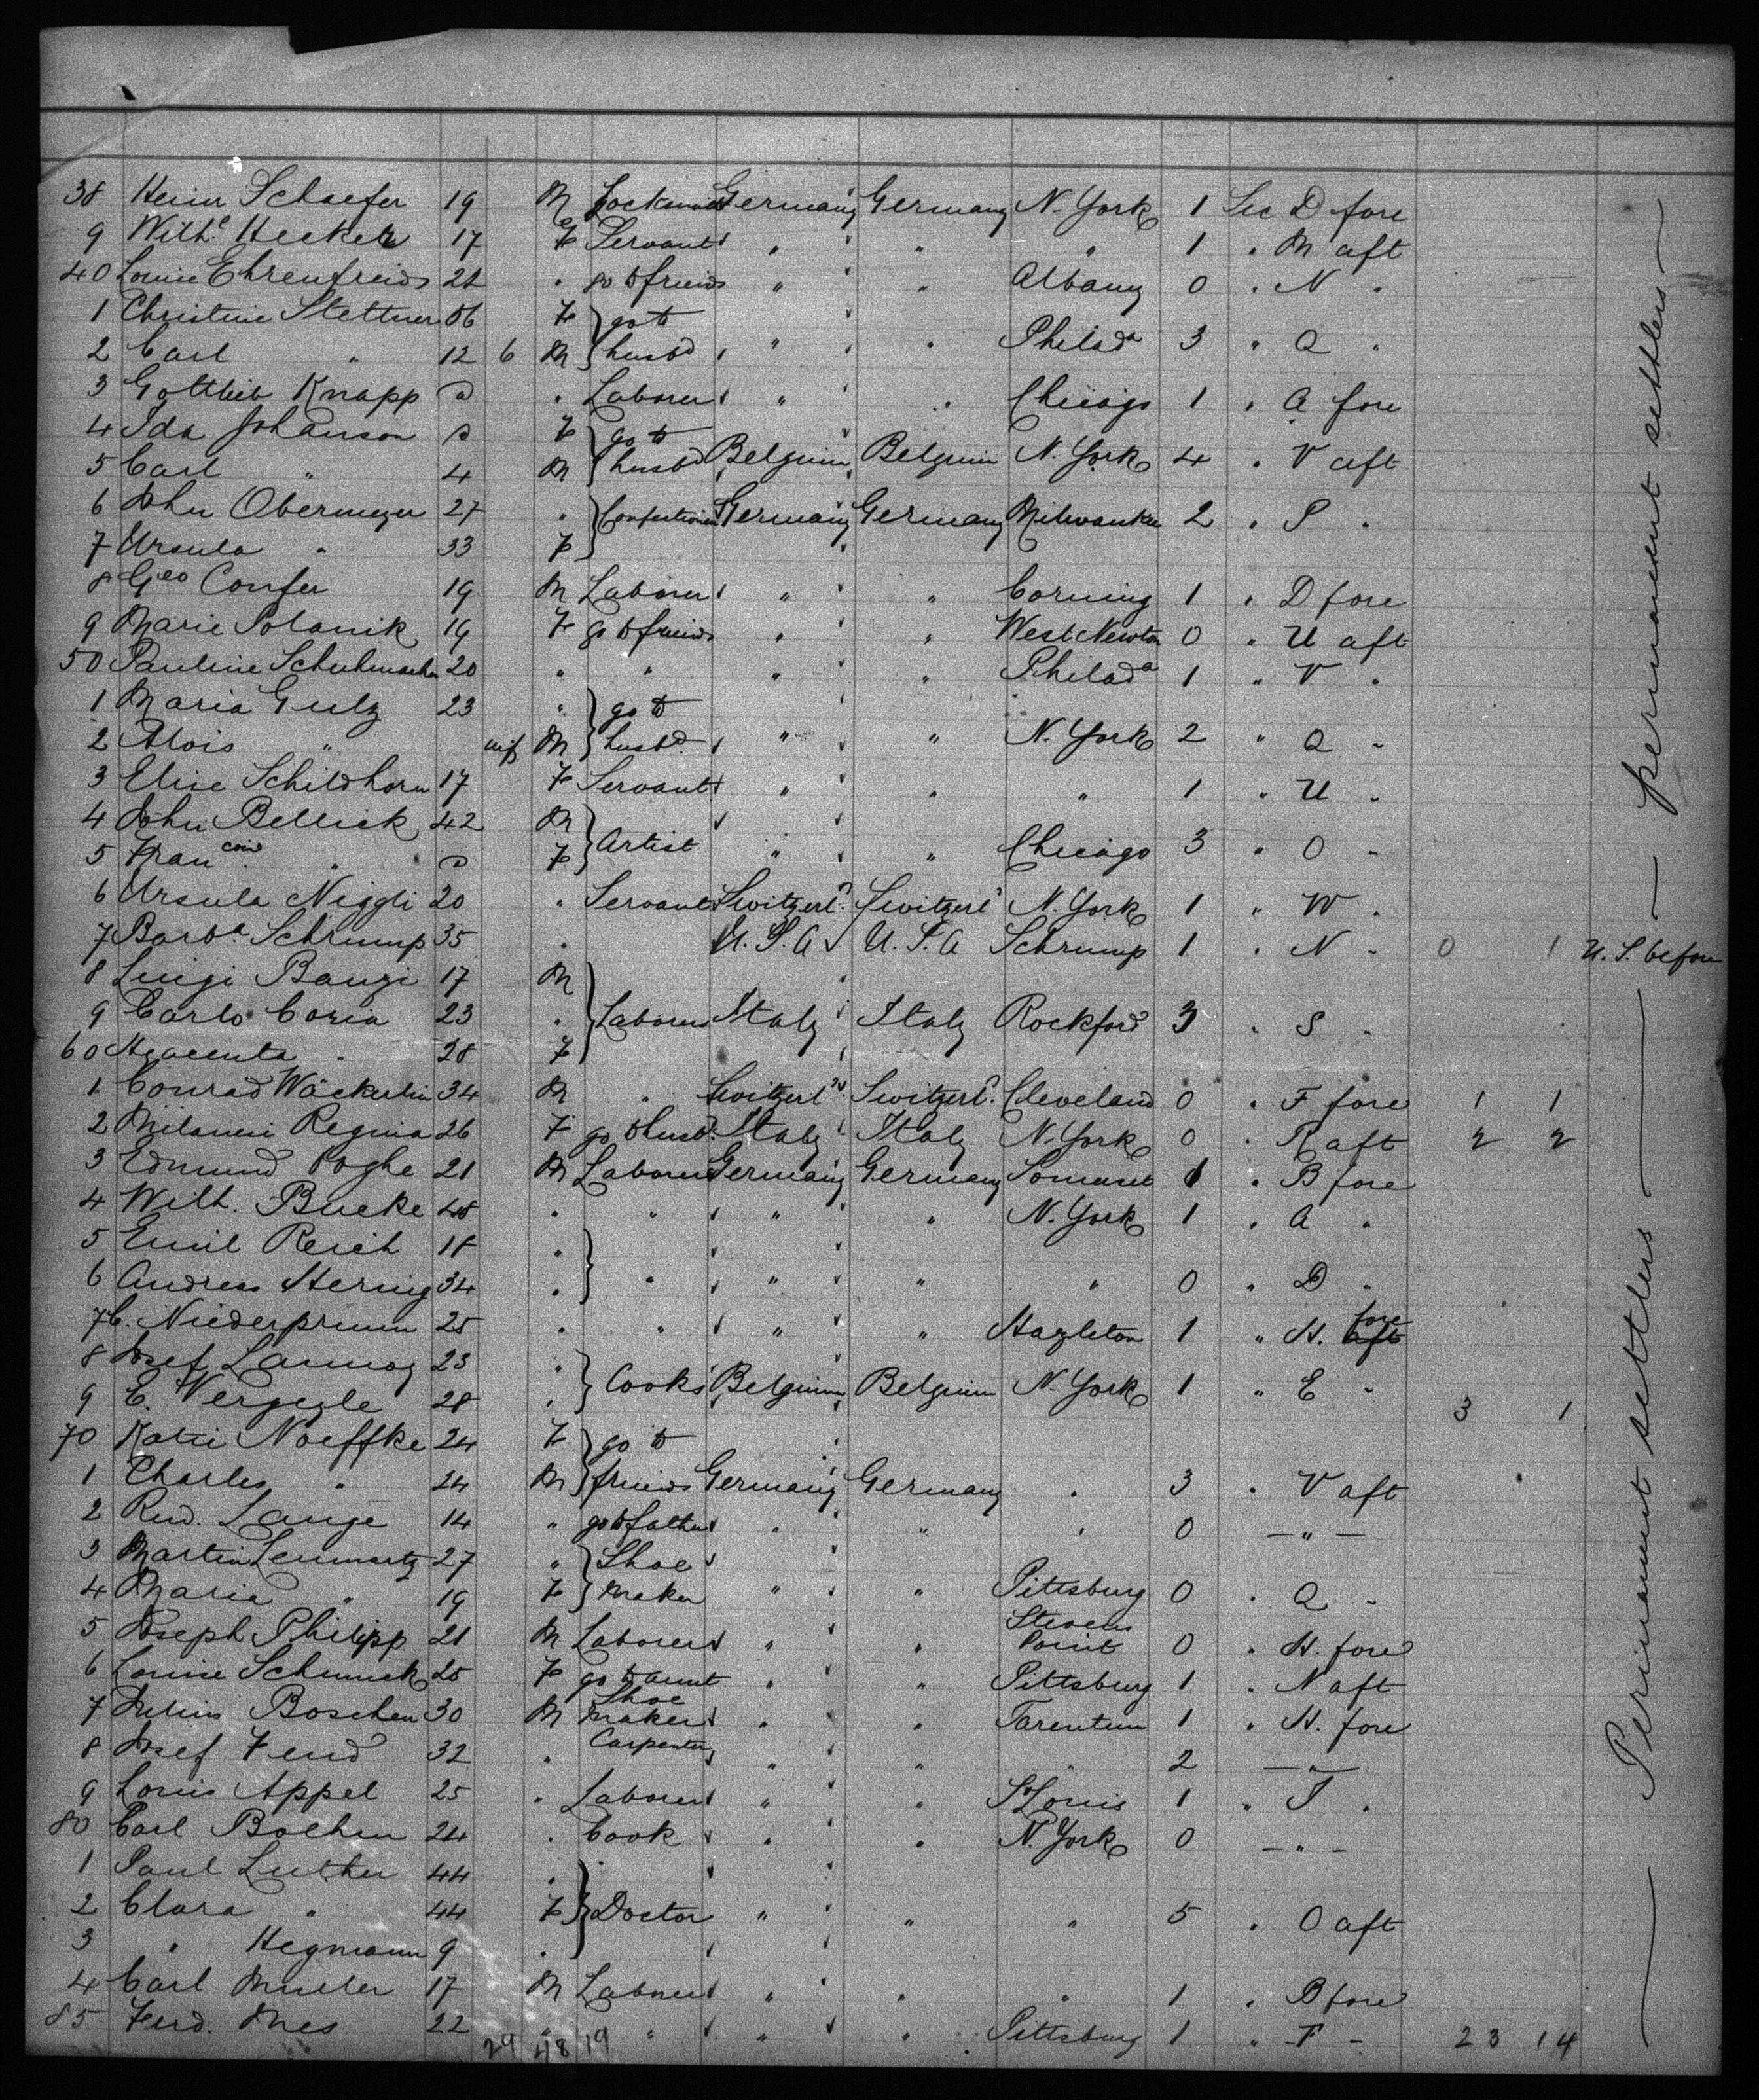 38 Heinr Schaefer 19 M Germany Germany N. York 1 Sec D fore
9 Wilh.e Hecker 17 F Servant " " " 1 " M aft
40 Louise Ehrenfreids " go to friends " " Albany 0 " N "
1 Christine Stettner F } go to
2 Carl " 12 6 M } husbd " " Philada 3 " Q "
3 Gottlieb Knapp " Laborer " " Chicago 1 " A fore
4 Ida Johanson F } go to
5 Carl " 4 M } husbd Belgium Belgium N. York 4 " V aft
6 John Obermeyer 27 " } Confectioner Germany Germany Milwaukee 2 " P "
7 Ursula " 33 F }
8 Geo Confer 19 M Laborer " " Corning 1 " D fore
9 Marie Polanik 19 F go to friends " " West Newton 0 " U aft
50 Pauline Schuhmacher 20 " " " " Philada 1 " V "
1 Maria Gulz 23 " } go to
2 Alois " inf M } husbd. " " N. York 2 " Q "
3 Elise Schildhorn 17 F Servant " " " 1 " U "
4 John Bellick 42 M }
5 " F } Artist " " Chicago 3 " O "
6 Ursula Niggli 20 " Servant Switzerld. Switzerld N. York 1 " W "
7 Barba. Schrump 35 " U. S. A U. S. A Schrump 1 " N " 0 1 U. S. before
8 Luigi Banzi 17 M }
9 Carlo Coria 23 " } Laborers Italy Italy Rockford 3 " S "
60 " 28 F }
1 Conrad Wäckerlin 34 M " Switzerld Switzerld. Cleveland 0 " F fore 1 1
2 Milanesi Regina 26 F go to husbd. Italy Italy N. York 0 " R aft 2 2
3 Edmund Poghe 21 M Laborer Germany Germany Somerset 1 " B fore
4 Wilh. Bucke 48 " " " " N. York 1 " A "
5 Emil Reich 18 " }
6 Andreas Hering 34 " } " " " " 0 " D "
7 C. Niederprum 25 " " " " Hazleton 1 " H. fore aft
8 Josef Lannoy 23 " }
9 E. 28 " } Cooks Belgium Belgium N. York 1 " E " 3 1
70 Katie Noeffke 24 F } go to
1 Charles " 24 M } friends Germany Germany " 3 " V aft
2 Rud. Lange 14 " go to father " " " 0 — " —
3 Martin Lennartz 27 " } Shoe
4 Maria " 19 F } maker " " Pittsburg 0 " Q "
5 Joseph Philipp 21 M Laborer " " Stevens Point 0 " H. fore
6 Louise Schmuck 25 F go to aunt " " Pittsburg 1 " N aft
7 Julius Boschen 30 M Shoe maker " " Tarentum 1 " H. fore
8 Josef Fend 32 " Carpenter " " " 2 — " —
9 Louis Appel 25 " Laborer " " St Louis 1 " "
80 Carl Boehm 24 " Cook " " N. York 0 — " —
1 Paul Luther 44 " }
2 Clara " 44 F } Doctor " " " 5 " O aft
3 " Hegmann 9 " }
4 Carl Muller 17 M Laborer " " " 1 " B fore
85 Ferd. Mes 22 " " " " Pittsburg 1 " F " 23 14
29 48 19
— Permanent settlers — permanent settlers —